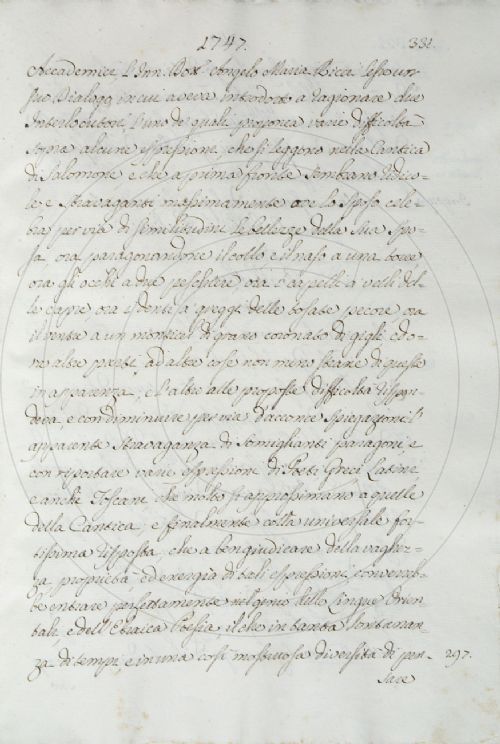 1747. 331.
Accademici, l'Inn. Dott. Angelo Maria Ricci lesse un
suo Dialogo, in cui aveva introdotto a ragionare due
Interlocutori, l'uno de' quali proponea varie difficoltà
sopra alcune espressioni, che si leggono nella Cantica
di Salomone e che a prima fronte sembrano ridico-
le e stravaganti massimamente ove lo Sposo cele-
bra per via di similitudini le bellezze della sua Spo-
sa ora paragonandone il collo e il naso a una torre
ora gli occhi a due peschiere ora i capelli a velli del-
le capre ora i denti a greggi delle tosate pecore ora
il ventre a un monticel di grano coronato di gigli, ed o-
ne altre parti, ad altre cose non meno strane di queste
in apparenza; e l'altro alle proposte difficoltà rispon-
deva, e con diminuire per via d'acconce spiegazioni l'
apparente stravaganza di somiglianti paragoni, e
con riportare varie espressioni di Poeti Greci, Latini
e anche Toscani che molto si approssimano a quelle
della Cantica; e finalmente colla universale for-
tissima risposta, che a ben giudicare della vaghez-
za, proprietà, ed energia di tali espressioni, converreb-
be entrare perfettamente nel genio delle Lingue Orien-
tali, e dell'Ebraica Poesia il che in tanta lontanan-
za di tempi, e in una così mostruosa diversità di pen- 297.
sare